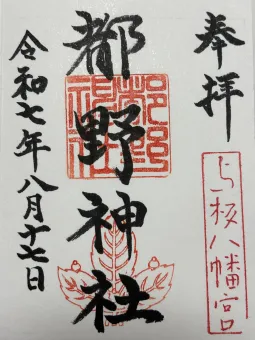 奉拝
都野神社
令和七年八月十七日
与板八幡宮